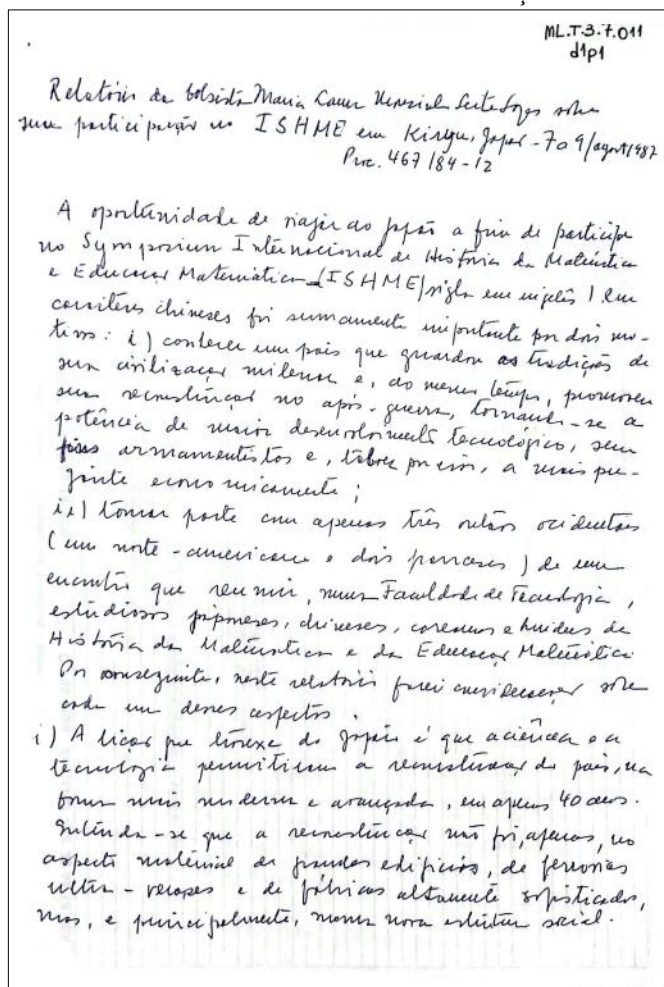 ML.T.3.7.011
d1p1
Relatório da bolsista Maria Laura Leite Lopes sobre
sua participação no ISHME em Kiryu, Japão - 7 a 9/agosto/1987
Proc. 467/84-12
A oportunidade de viajar ao Japão a fim de participar
no Symposium Internacional de História da Matemática
e Educação Matemática (ISHME) sigla em inglês) em
caracteres chineses foi sumamente importante por dois mo-
tivos: i) conhecer um país que guardou as tradições de
sua civilização milenar e, ao mesmo tempo, promoveu
sua reconstrução no após-guerra, tornando-se a
potência de maior desenvolvimento tecnológico, sem
fins armamentistas e, talvez por isso, a mais pu-
jante economicamente;
ii) tomar parte com apenas três outros ocidentais
(um norte-americano e dois franceses) de um
encontro que reuniu, numa Faculdade de Tecnologia,
estudiosos japoneses, chineses, coreanos e hindus de
História da Matemática e da Educação Matemática
Por conseguinte, neste relatório farei considerações sobre
cada um desses aspectos.
i) A lição que trouxe do Japão é que a ciência e a
tecnologia permitiram a reconstrução do país, na
forma mais moderna e avançada, em apenas 40 anos.
Entenda-se que a reconstrução não foi, apenas, no
aspecto material de grandes edifícios, de ferrovias
ultra-velozes e de fábricas altamente sofisticadas,
mas, e principalmente, numa nova estrutura social.